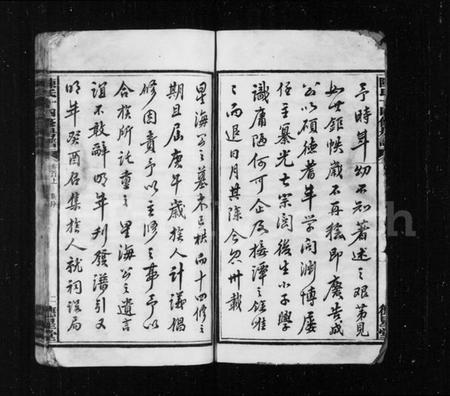 予時年幼不知著述之艱第見
如此鉅帙歲不再稔即慶告成
公以碩德耆年學問淵博屢
任主纂光大宗後生小子學
識庸陋何可企及接譚之餘唯
而退日月其除今忽卅載
星海公之墓木已拱而十四修之
期且屆庚午歲族人計議倡
修因責予以主修之事予以
合族所託重之星海公之遺言
誼不敢辭明年刊發譜引又
明年癸酉召集族人就祠設局
二 德星堂